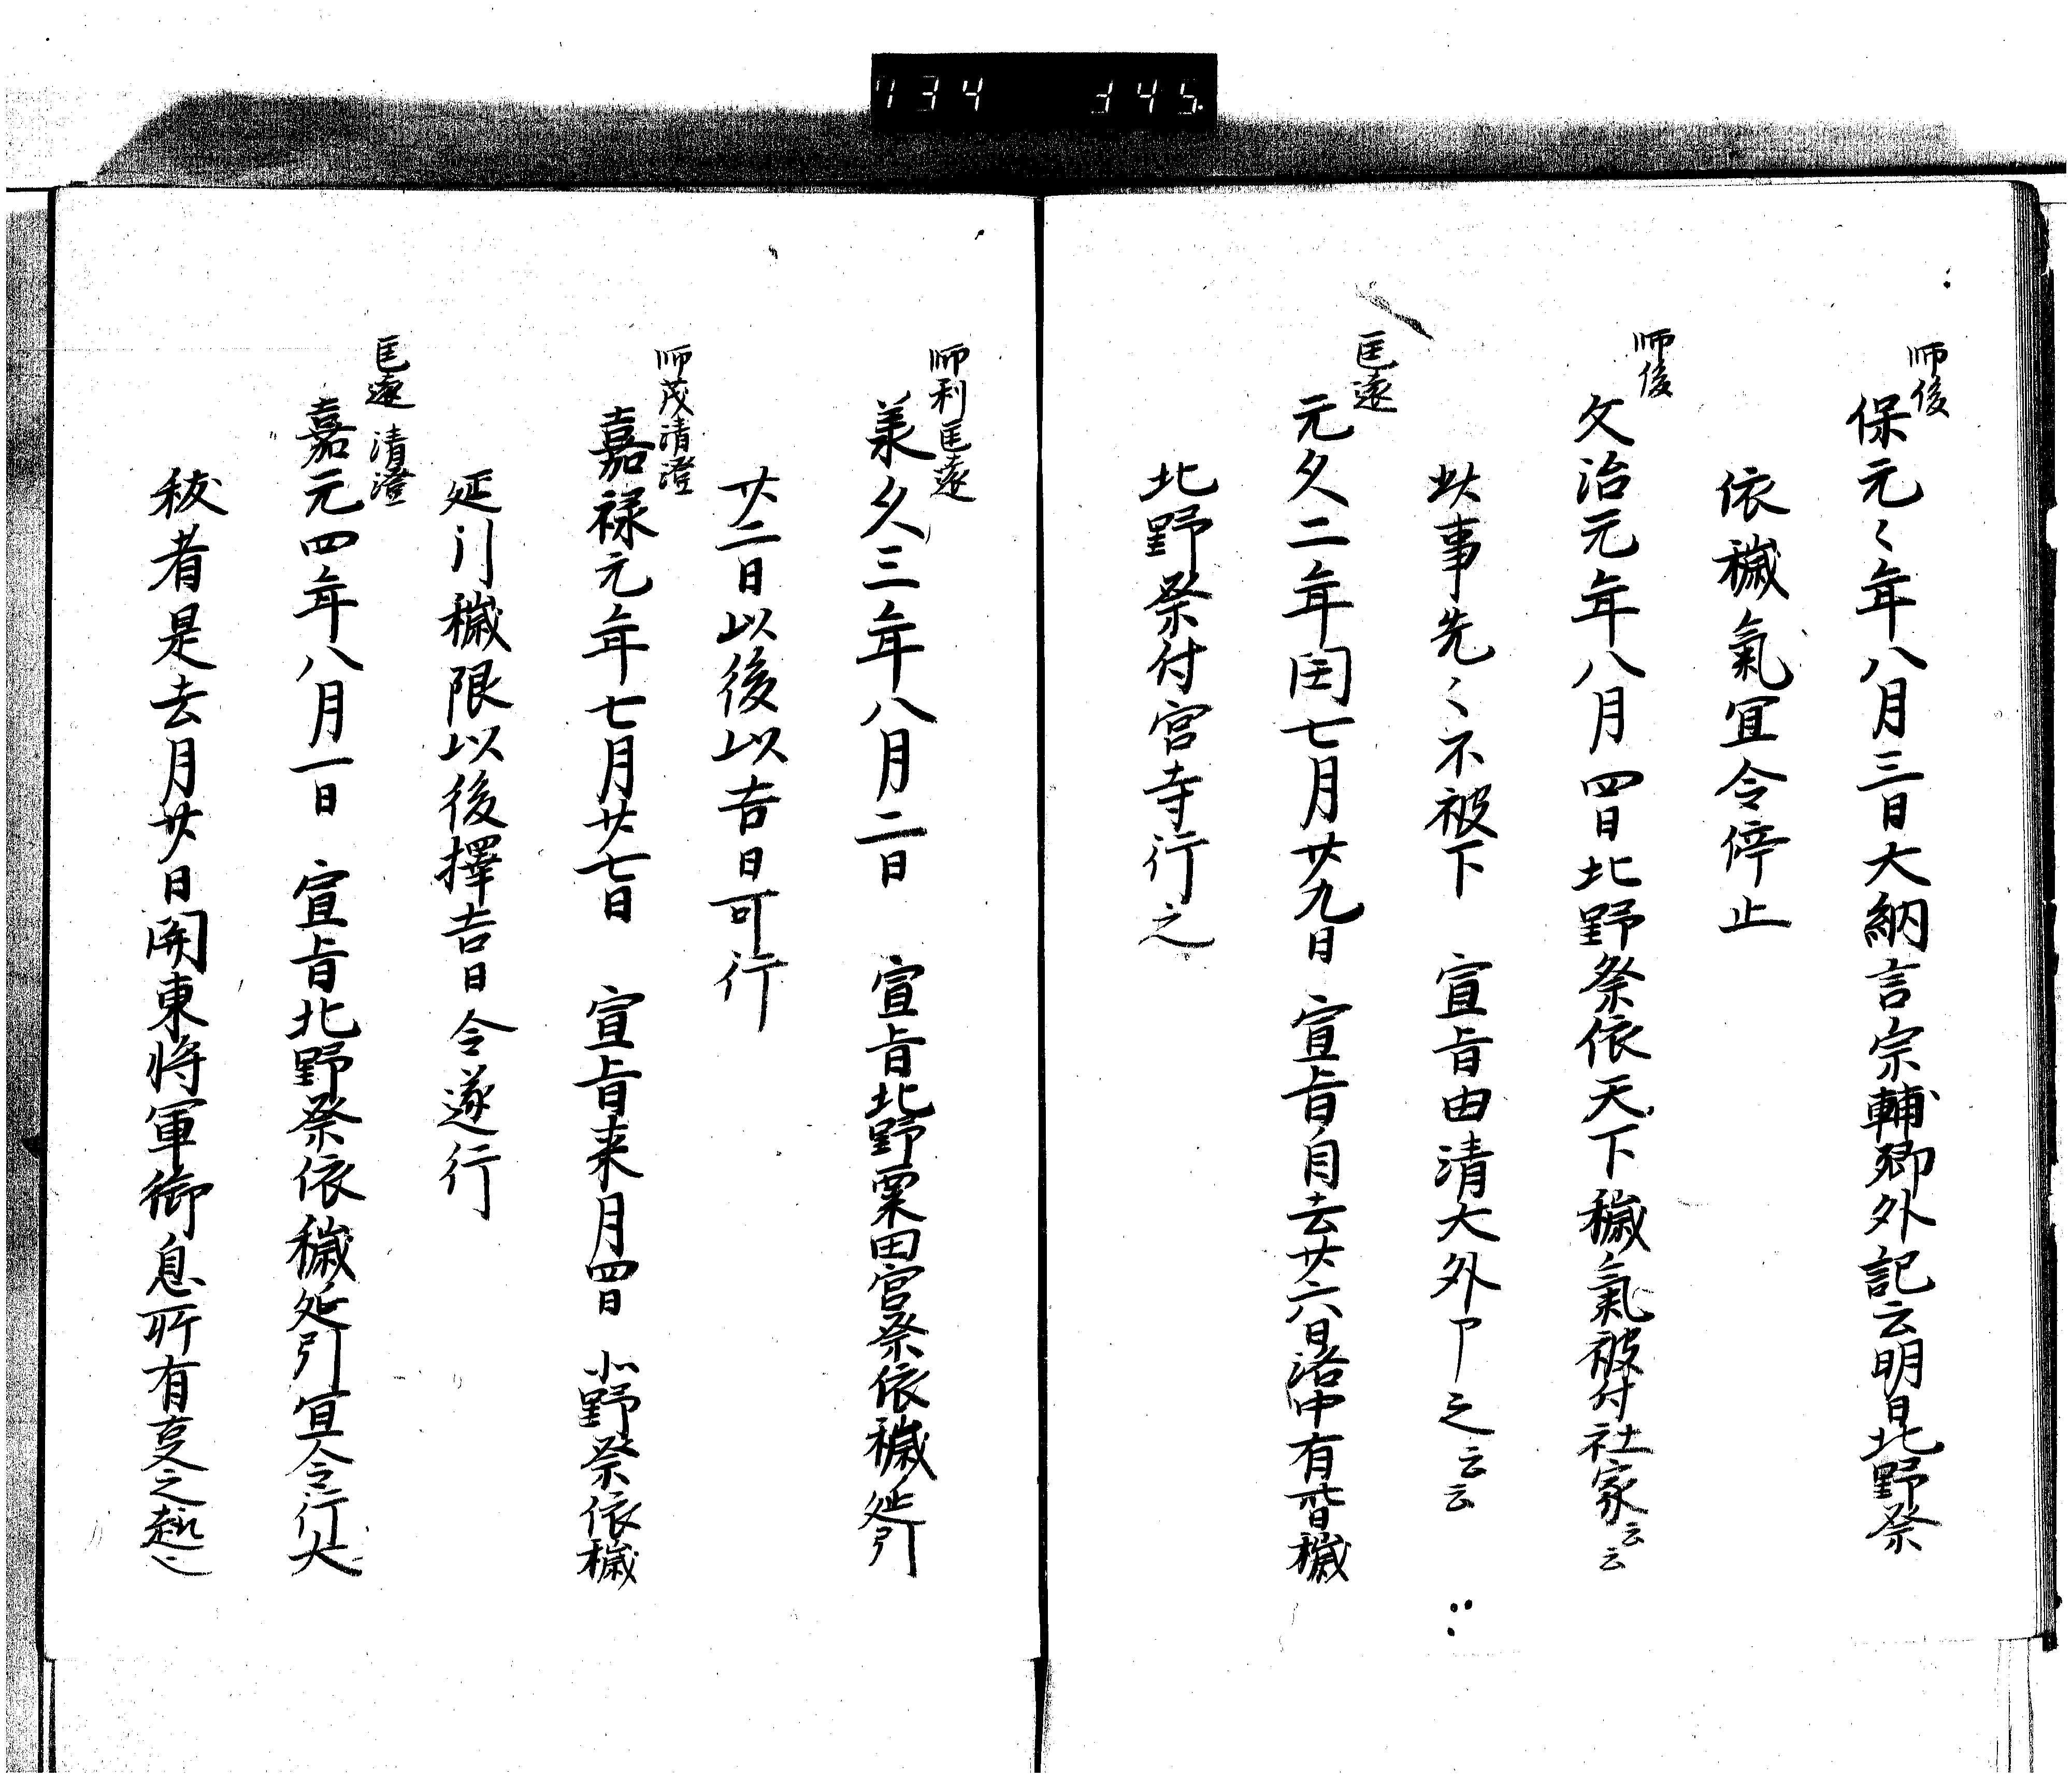 734 345
師俊
保元々年八月三日大納言宗輔卿外記云明日北野祭
依穢氣宜令停止
師俊
文治元年八月四日北野祭依天下穢氣被付社家云云
此事先々不被下 宣旨由清大外卩之云云
匡遠
元久二年閏七月廿九日 宣旨自去廿六日洛中有 穢
北野祭付宮寺行之
師利匡遠
承久三年八月二日 宣旨北野粟田宮祭依穢延引
廿二日以後以吉日可行
師茂清澄
嘉禄元年七月廿七日 宣旨来月四日北野祭依穢
延引穢限以後擇吉日令遂行
匡遠 清澄
嘉元四年八月一日 宣旨北野祭依穢延引宜令行大
秡者是去月廿日関東将軍御息所有夏之